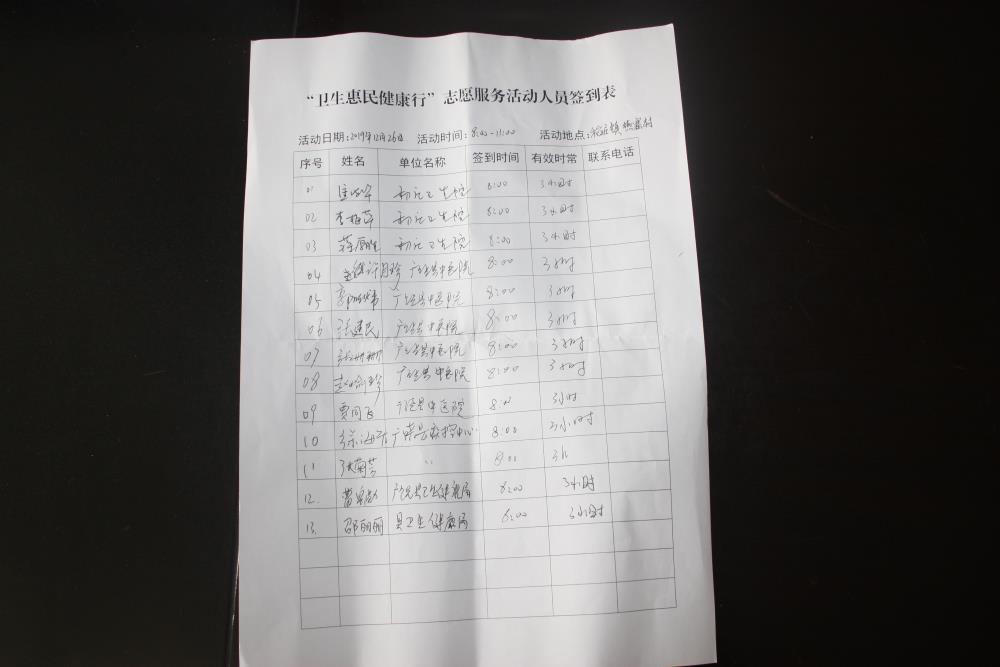 “卫生惠民健康行”志愿服务活动人员签到表
活动日期:2019年12月26日 活动时间:8:00-11:00 活动地点:稻庄镇
序号 姓名 单位名称 签到时间 有效时常 联系电话
01 稻庄卫生院 8:00 3小时
02 李 稻庄卫生院 8:00 3小时
03 蒋 稻庄卫生院 8:00 3小时
04 广饶县中医院 8:00 3小时
05 广饶县中医院 8:00 3小时
06 张建民 广饶县中医院 8:00 3小时
07 广饶县中医院 8:00 3小时
08 广饶县中医院 8:00 3小时
09 贾 广饶县中医院 8:00 3小时
10 徐海 广饶县疾控中心 8:00 3小时
11 张菊芳 〃 8:00 3h
12. 广饶县卫生健康局 8:00 3小时
13. 邵丽丽 县卫生健康局 8:00 3小时